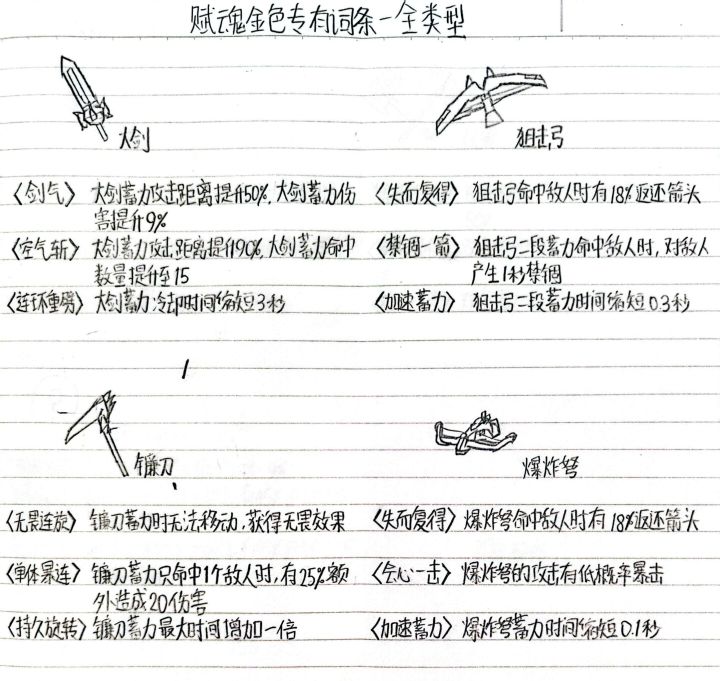 赋魂金色专有词条一全类型
大剑
狙击弓
〈剑气〉 大剑蓄力攻击距离提升50%,大剑蓄力伤
害提升9%
〈空气斩〉 大剑蓄力攻击距离提升90%,大剑蓄力命中
数量提升至15
〈连环重劈〉 大剑蓄力冷却时间缩短3秒
〈失而复得〉 狙击弓命中敌人时有18%返还箭头
〈禁锢一箭〉 狙击弓二段蓄力命中敌人时,对敌人
产生1秒禁锢
〈加速蓄力〉 狙击弓二段蓄力时间缩短0.3秒
镰刀
爆炸弩
〈无畏连旋〉 镰刀蓄力时无法移动,获得无畏效果
〈单体暴连〉 镰刀蓄力只命中1个敌人时,有25%额
外造成20伤害
〈持久旋转〉 镰刀蓄力最大时间增加一倍
〈失而复得〉 爆炸弩命中敌人时有18%返还箭头
〈会心一击〉 爆炸弩的攻击有低概率暴击
〈加速蓄力〉 爆炸弩蓄力时间缩短0.1秒